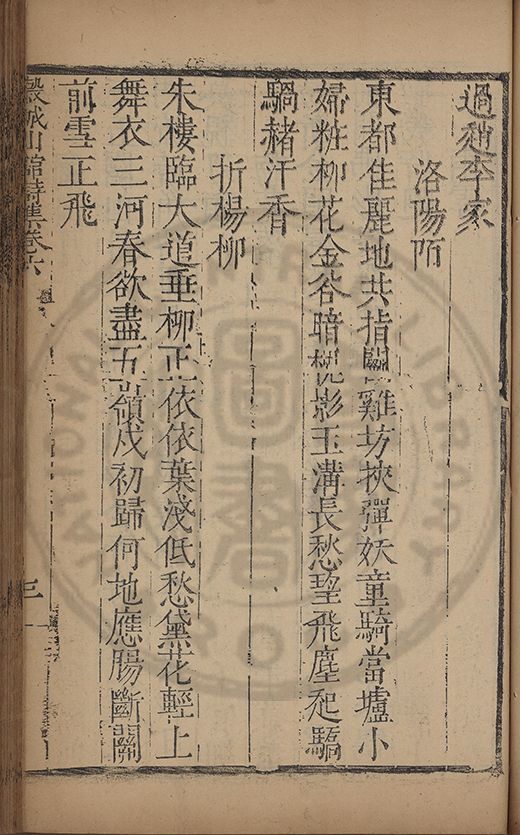 過趙李家
洛陽陌
東都佳麗地共指鬪雞坊挾彈妖童騎當壚小
婦粧柳花金谷暗桃影玉溝長愁望飛塵起驕
騧赭汗香
折楊柳
朱樓臨大道垂柳正依依葉淺低愁黛花輕上
舞衣三河春欲盡五嶺戍初歸何地應腸斷關
前雪正飛
穀城山館詩集卷六
三